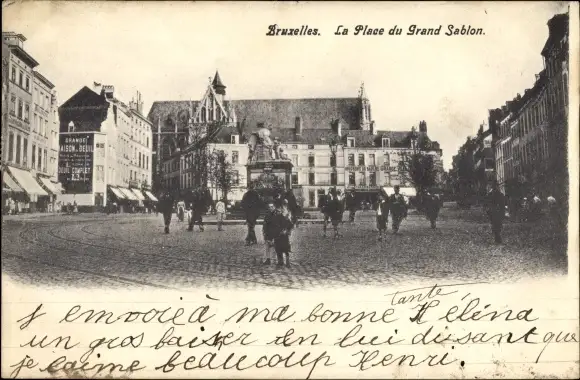 Bruxelles. La Place du Grand Sablon.
GRANDE
MAISON DE DEUIL
DEUIL COMPLET
tante
J'envoie à ma bonne Héléna
un gros baiser en lui disant que
je l'aime beaucoup Henri.